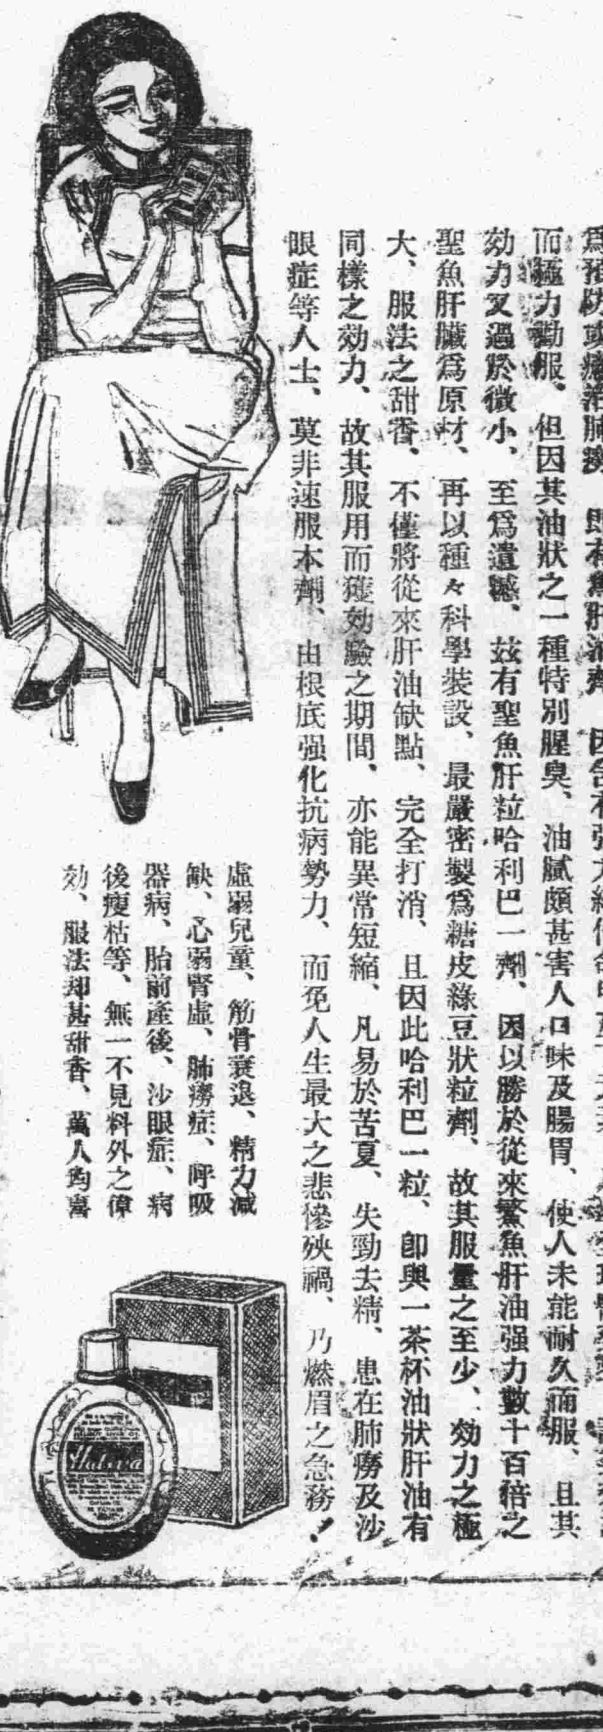 而極力勸服、但因其油狀之一種特別腥臭、油膩頗甚害人口味及腸胃、使人未能耐久而服、且其
効力又過於微小、至爲遺憾、玆有聖魚肝粒哈利巴一劑、因以勝於從來鱉魚肝油强力數十百倍之
聖魚肝臟爲原材、再以種々科學裝設、最嚴密製爲糖皮綠豆狀粒劑、故其服量之至少、効力之極
大、服法之甜香、不僅將從來肝油缺點、完全打消、且因此哈利巴一粒、卽與一茶杯油狀肝油有
同樣之効力、故其服用而獲効驗之期間、亦能異常短縮、凡易於苦夏、失勁去精、患在肺癆及沙
眼症等人士、莫非速服本劑、由根底强化抗病勢力、而免人生最大之悲慘殃禍、乃燃眉之急務！
虛弱兒童、筋骨衰退、精力減
缺、心弱腎虛、肺癆症、呼吸
器病、胎前產後、沙眼症、病
後瘦枯等、無一不見料外之偉
効、服法却甚甜香、萬人均喜
Haliva